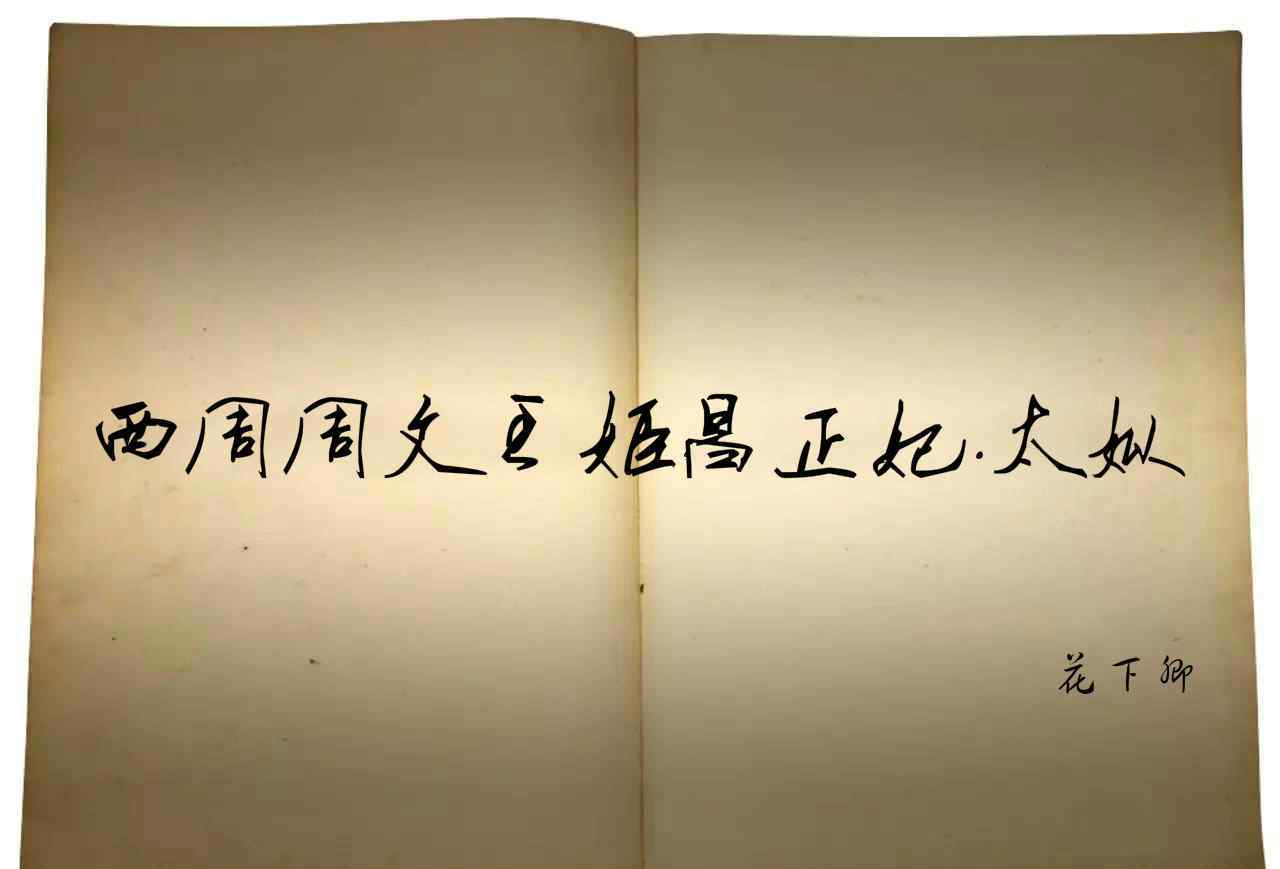 西周周文王姬昌正妃·太姒
花下卿